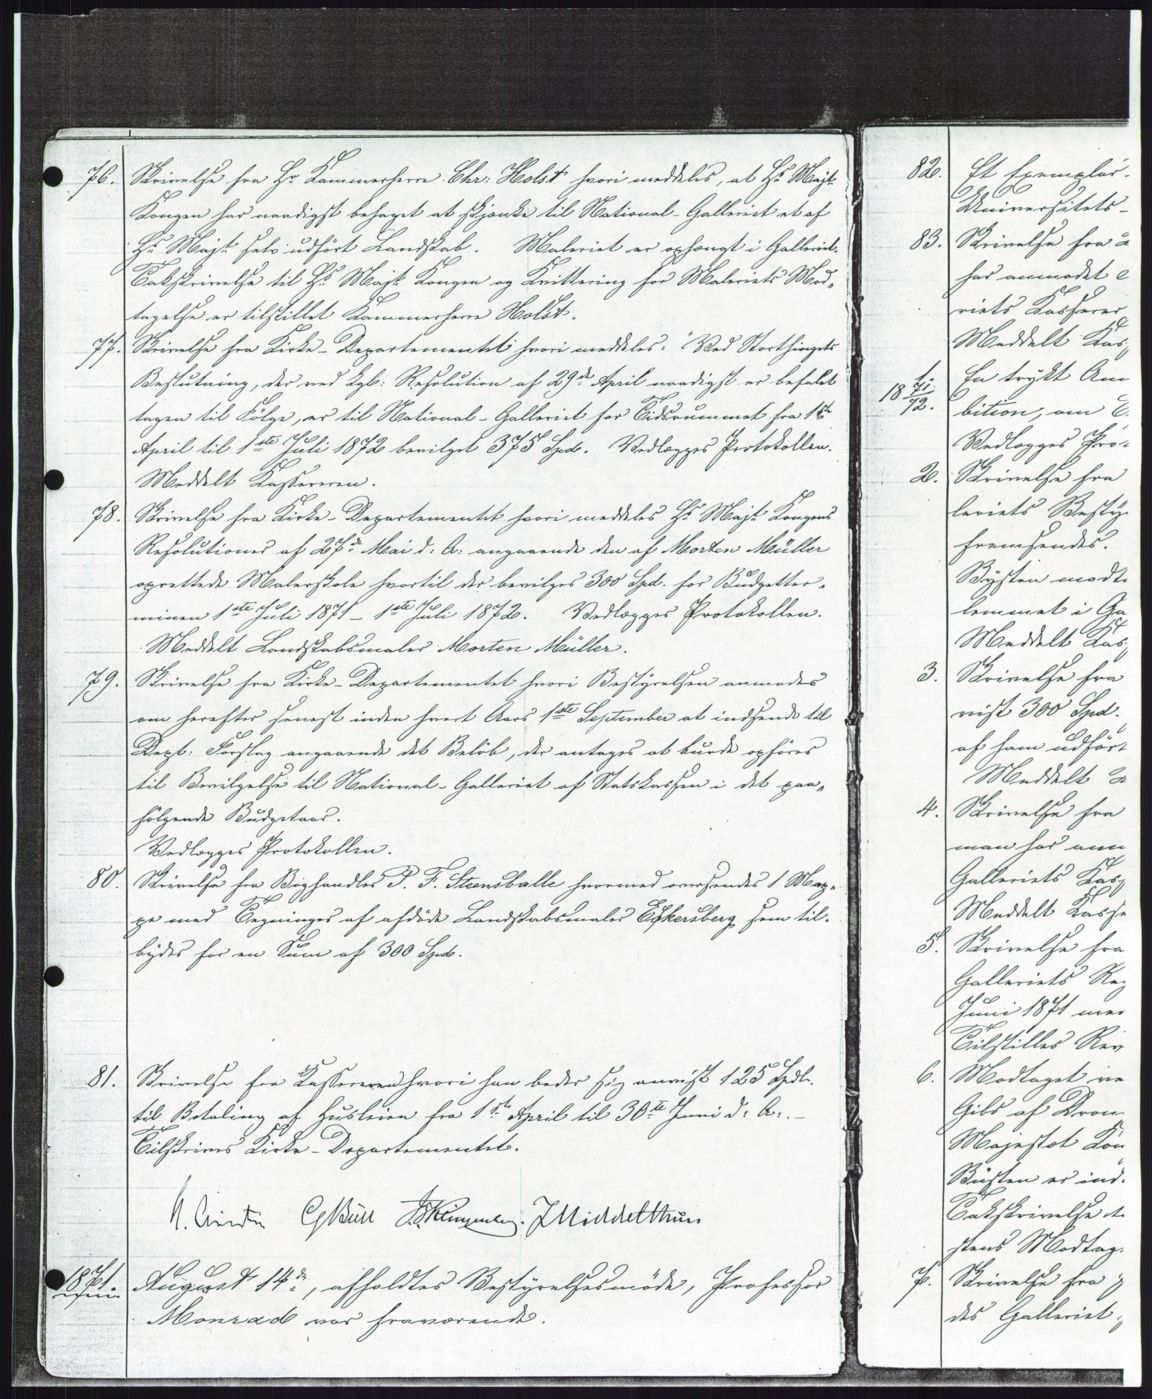 76. Skrivelse fra Hr Kammerherre Chr: Holst hvori meddeles, at Hs Majt:
Kongen har naadigst behaget at skjænke til National-Galleriet et af
Hs Majt. selv udført Landskab. Maleriet er ophængt i Galleriet.
Takskrivelse til Hs Majt Kongen og Kvittering for Maleriets Mod-
tagelse er tilstillet Kammerherre Holst.
77. Skrivelse fra Kirke-Departementet hvori meddeles. "Ved Storthingets
Beslutning, der ved kgl: Resolution af 29de April naadigst er befalet
tagen til Følge, er til National-Galleriet for Tidsrummet fra 1ste
April til 1ste Juli 1872 bevilget 375 Spd. Vedlægges Protokollen.
Meddelt Kassereren.
78. Skrivelse fra Kirke-Departementet hvori meddeles Hs Majt Kongens
Resolutioner af 27de Mai d: A: angaaende den af Morten Müller
oprettede Malerskole hvortil der bevilges 300 Spd. for Budgetter-
minen 1ste Juli 1871 - 1ste Juli 1872. Vedlægges Protokollen.
Meddelt Landskabsmaler Morten Müller.
79. Skrivelse fra Kirke-Departementet hvori Bestyrelsen anmodes
om herefter senest inden hvert Aars 1ste September at indsende til
Dept: Forslag angaaende det Beløb, der antages at burde opføres
til Bevilgelse til National-Galleriet af Statskassen i det paa-
følgende Budgetaar.
Vedlægges Protokollen.
80. Skrivelse fra Boghandler P. F. Steensballe hvormed oversendes 1 Map-
pe med Tegninger af afdøde Landskabsmaler Eckersberg som til-
bydes for en Sum af 300 Spd.
81. Skrivelse fra Kassereren hvori han beder sig anvist 125 Spd.
til Betaling af Husleien fra 1ste April til 30te Juni d: A:. -
Tilskrives Kirke-Departementet.
Middelthun
1871. August 14de, afholdtes Bestyrelsesmøde, Professor
Monrad var fraværende.
82. Et Exemplar
Universitets-
83. Skrivelse fra
har anmodet
riets Kasserer
Meddelt Kas-
18 71/72. 1. En trykt Am
bition, om
Vedlægges Pro-
2. Skrivelse fra
leriets Besty
fremsendes.
Bysten modt
lemmet i Ga
Meddelt Kas-
3. Skrivelse fra
vist 300 Spd.
af ham udført
Meddelt
4. Skrivelse fra
man har anm
Galleriets Kas-
Meddelt Kasse
5. Skrivelse fra
Galleriets Reg
Juni 1871 med
Tilstilles Rev
6. Modtaget
Gibs af Dron
Majestæt Kon
Büsten er ind.
Takskrivelse
stens Modtag.
7. Skrivelse fra
des Galleriet